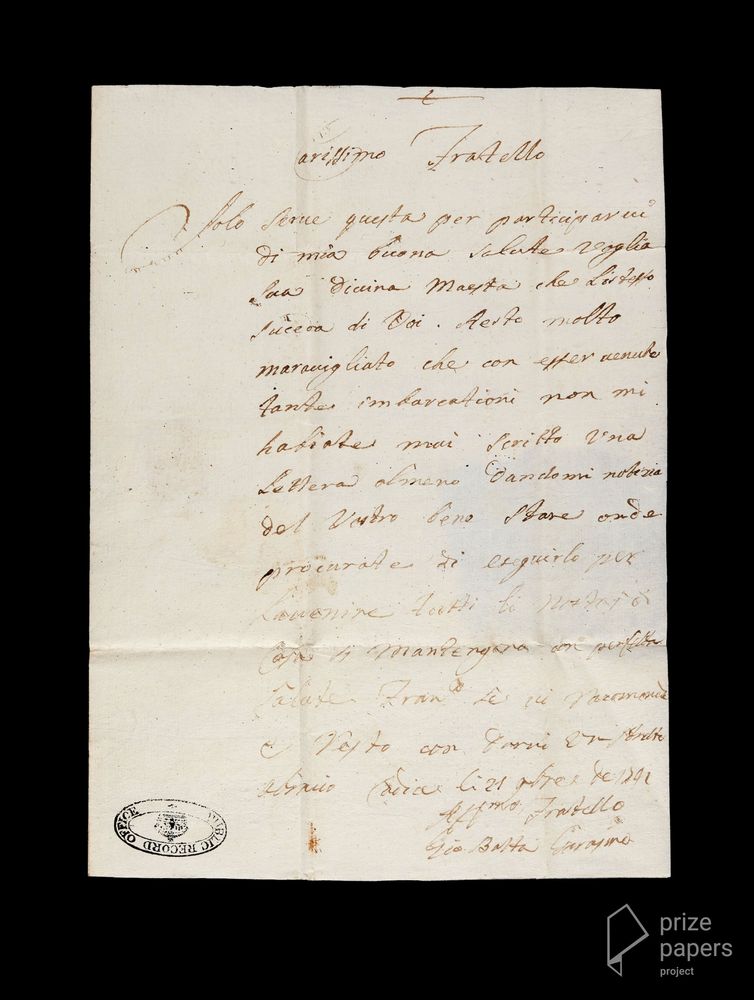 Carissimo Fratello
Solo serve questa per participarvi
di mia buona salute voglia
Sua Divina Maesta che L'istesso
succeda di Voi. Resto molto
maravigliato che con esser venute
tante imbarcationi non mi
habiate mai scritto Una
Lettera almeno dandomi notizia
del Vostro bene stare onde
procurate di eseguirlo per
Lavvenire Tutti li nostri di
Casa si Mantengono con perfetta
salute Fran.co se vi racomanda
e Resto con darvi Un stretto
abracio Cadice li 21 9bre de
Aff.mo Fratello
Gio Batta
PUBLIC RECORD OFFICE
prize
papers
project